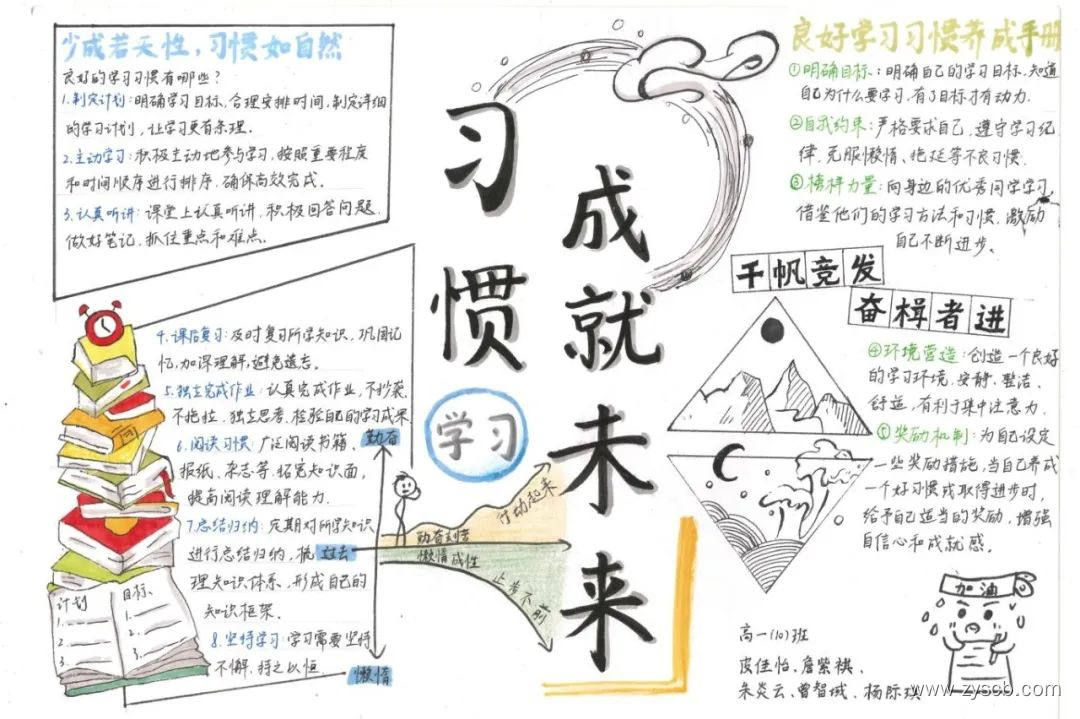 少成若天性，习惯如自然
良好的学习习惯有哪些?
1.制定计划:明确学习目标、合理安排时间、制定详细
的学习计划，让学习更有条理。
2.主动学习:积极主动地参与学习，按照重要程度
和时间顺序进行排序，确保高效完成。
3.认真听讲:课堂上认真听讲，积极回答问题，
做好笔记，抓住重点和难点。
4.课后复习:及时复习所学知识，巩固记
忆，加深理解，避免遗忘。
5.独立完成作业:认真完成作业，不抄袭、
不拖拉，独立思考，检验自己的学习成果
6.阅读习惯 广泛阅读书籍、
报纸、杂志等，拓宽知识面，
提高阅读理解能力.
7.总结归纳:定期对所学知识
进行总结归纳，梳
理知识体系、形成自己的
知识框架.
8.坚持学习:学习需要坚持
不懈，持之以恒
计划
1.
2.
3.
目标
1.
2.
3.
勤奋
过去
懒惰
勤奋刻苦
行动起来
懒惰成性
止步不前
习惯
成就未来
学习
良好学习习惯养成手册
①明确目标:明确自己的学习目标、知道
自己为什么要学习，有了目标才有动力.
②自我约束:严格要求自己，遵守学习纪
律，克服懒惰、拖延等不良习惯.
③榜样力量:向身边的优秀同学学习，
借鉴他们的学习方法和习惯，激励
自己不断进步。
千帆竞发
奋楫者进
④环境营造:创造一个良好
的学习环境，安静、整洁、
舒适，有利于集中注意力.
⑤奖励机制:为自己设定
一些奖励措施，当自己养成
一个好习惯或取得进步时，
给予自己适当的奖励，增强
自信心和成就感。
加油
高一(10)班
皮佳怡、詹紫祺、
朱炎云、曾智城、杨际琪
www.zyscb.com